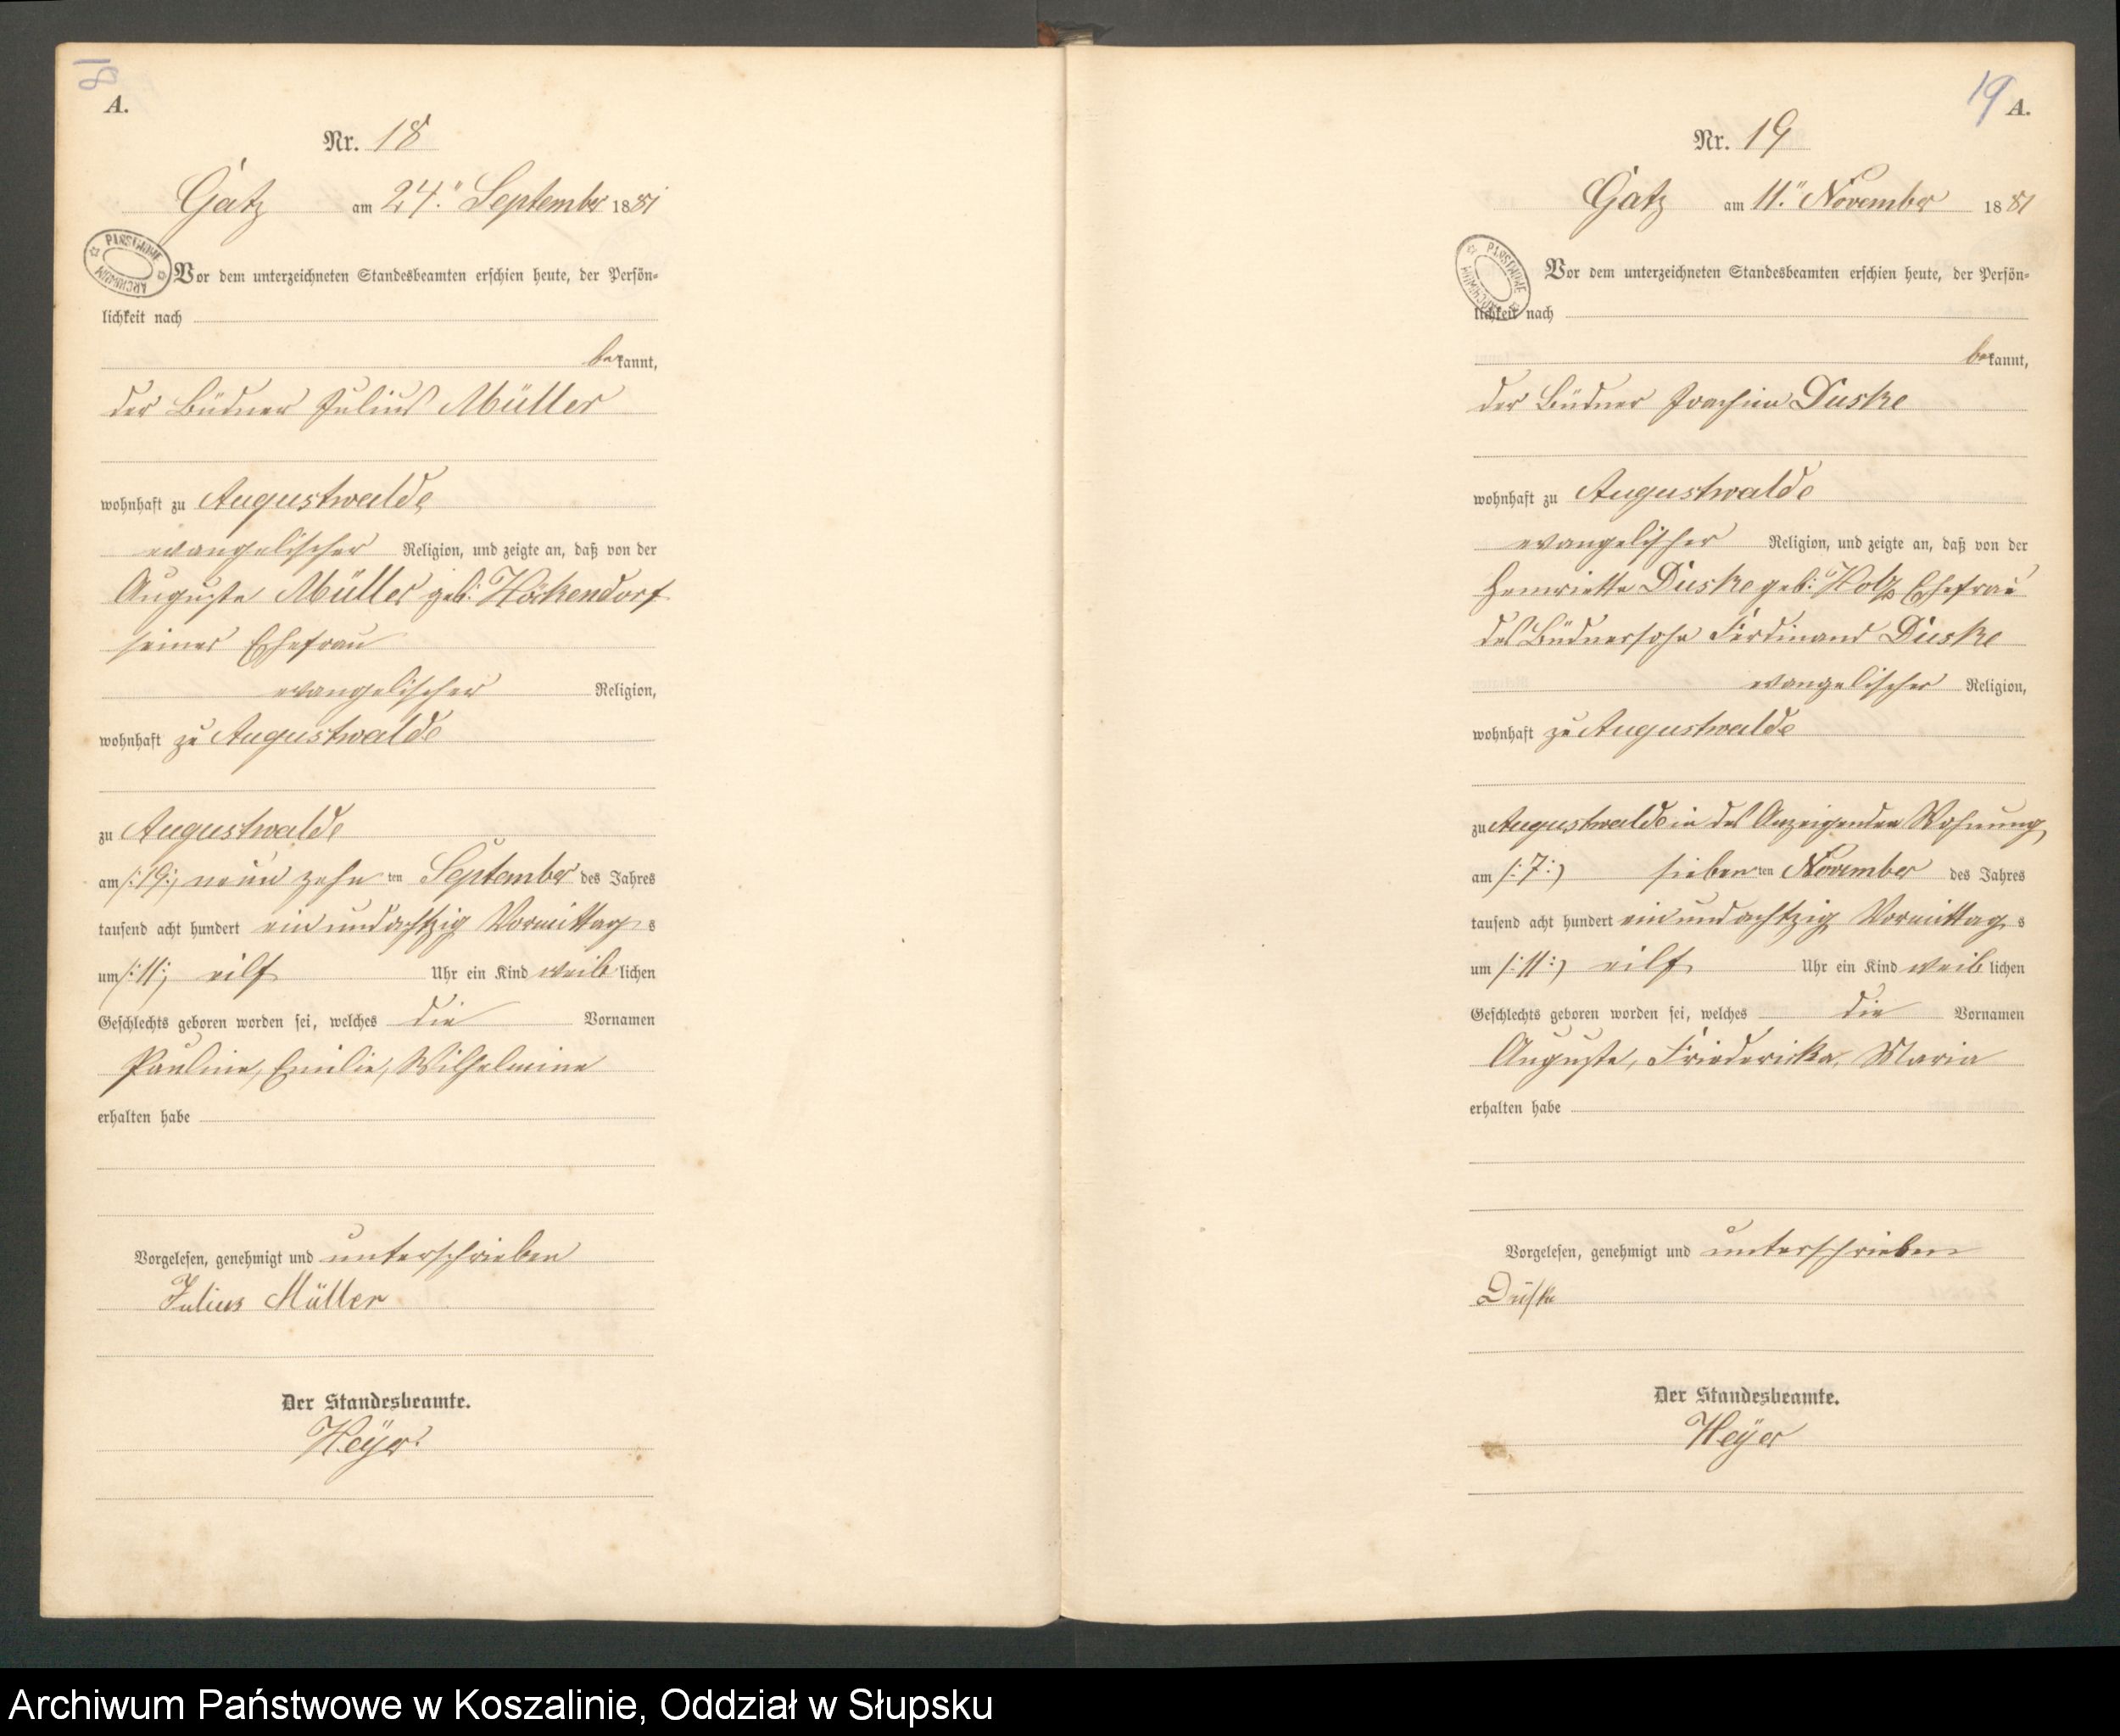 18
A.
Nr. 18
Gatz am 24." September 1881
Vor dem unterzeichneten Standesbeamten erschien heute, der Persön-
lichkeit nach
bekannt,
der Büdner Julius Müller
wohnhaft zu Augustwalde
evangelischer Religion, und zeigte an, daß von der
Auguste Müller geb: Höckendorf
seiner Ehefrau
evangelischer Religion,
wohnhaft zu Augustwalde
zu Augustwalde
am /:19:/ neun zehn ten September des Jahres
tausend acht hundert ein und achtzig Vormittag s
um /:11:/ eilf Uhr ein Kind weib lichen
Geschlechts geboren worden sei, welches die Vornamen
Pauline, Emilie, Wilhelmine
erhalten habe
Vorgelesen, genehmigt und unterschrieben
Julius Müller
Der Standesbeamte.
Heÿer
19
A.
Nr. 19
Gatz am 11." November 1881
Vor dem unterzeichneten Standesbeamten erschien heute, der Persön-
lichkeit nach
bekannt,
der Büdner Joachim Duske
wohnhaft zu Augustwalde
evangelischer Religion, und zeigte an, daß von der
Henriette Duske geb: Holz Ehefrau
des Büdnersohn Ferdinand Duske
evangelischer Religion,
wohnhaft zu Augustwalde
zu Augustwalde in des Anzeigenden Wohnung
am /:7:/ sieben ten November des Jahres
tausend acht hundert ein und achtzig Vormittag s
um /:11:/ eilf Uhr ein Kind weib lichen
Geschlechts geboren worden sei, welches die Vornamen
Auguste, Friedericka, Maria
erhalten habe
Vorgelesen, genehmigt und unterschrieben
Duske
Der Standesbeamte.
Heÿer
Archiwum Państwowe w Koszalinie, Oddział w Słupsku